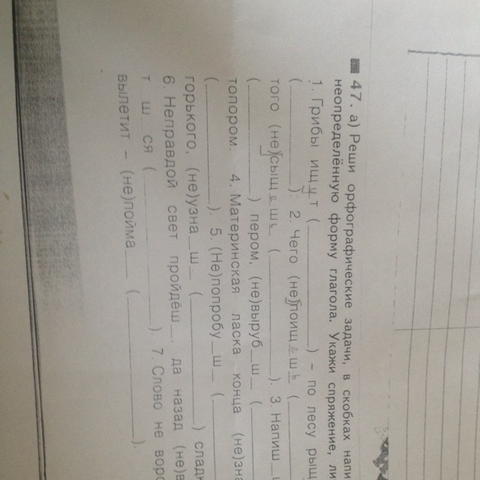 47. а) Реши орфографические задачи, в скобках напи
неопределённую форму глагола. Укажи спряжение, ли
1. Грибы ищут (______) – по лесу рыщ
(______). 2. Чего (не)поищешь (______
того (не)сыщешь (______). 3. Напиш_
(______) пером, (не)выруб_ш_ (______
топором. 4. Материнская ласка конца (не)зна
(______). 5. (Не)попробу_ш_ (______
горького, (не)узна_ш_ (______) сладк
6. Неправдой свет пройдёш_, да назад (не)в
т_ш_ся (______) 7. Слово не воро
вылетит – (не)пойма_ (______).